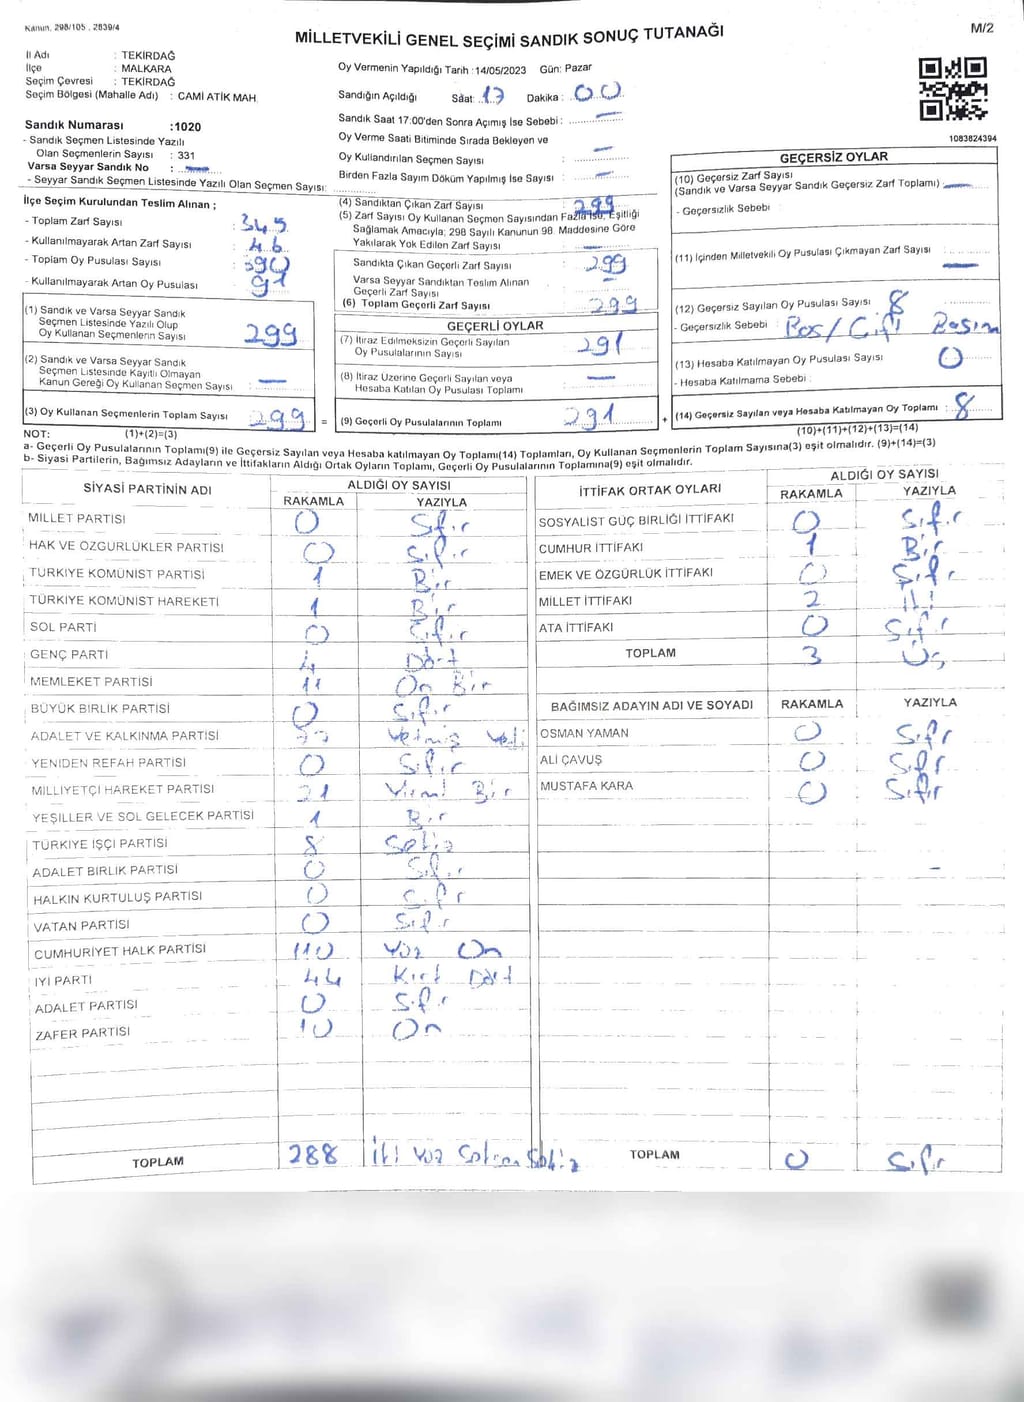 Kanun, 298/105 , 2839/4
MİLLETVEKİLİ GENEL SEÇİMİ SANDIK SONUÇ TUTANAĞI
M/2
İl Adı : TEKİRDAĞ
İlçe : MALKARA
Seçim Çevresi : TEKİRDAĞ
Seçim Bölgesi (Mahalle Adı) : CAMİ ATİK MAH
Sandık Numarası :1020
- Sandık Seçmen Listesinde Yazılı
Olan Seçmenlerin Sayısı : 331
Varsa Seyyar Sandık No : —
- Seyyar Sandık Seçmen Listesinde Yazılı Olan Seçmen Sayısı:
Oy Vermenin Yapıldığı Tarih :14/05/2023 Gün: Pazar
Sandığın Açıldığı Saat: 17 Dakika : 00
Sandık Saat 17:00'den Sonra Açımış İse Sebebi : —
Oy Verme Saati Bitiminde Sırada Bekleyen ve
Oy Kullandırılan Seçmen Sayısı : —
Birden Fazla Sayım Döküm Yapılmış İse Sayısı : —
1083824394
İlçe Seçim Kurulundan Teslim Alınan ;
- Toplam Zarf Sayısı : 345
- Kullanılmayarak Artan Zarf Sayısı : 46
- Toplam Oy Pusulası Sayısı : 390
- Kullanılmayarak Artan Oy Pusulası : 91
(1) Sandık ve Varsa Seyyar Sandık
Seçmen Listesinde Yazılı Olup
Oy Kullanan Seçmenlerin Sayısı : 299
(2) Sandık ve Varsa Seyyar Sandık
Seçmen Listesinde Kayıtlı Olmayan
Kanun Gereği Oy Kullanan Seçmen Sayısı : —
(3) Oy Kullanan Seçmenlerin Toplam Sayısı : 299
(1)+(2)=(3)
(4) Sandıktan Çıkan Zarf Sayısı : 299
(5) Zarf Sayısı Oy Kullanan Seçmen Sayısından Fazla İse, Eşitliği
Sağlamak Amacıyla; 298 Sayılı Kanunun 98. Maddesine Göre
Yakılarak Yok Edilen Zarf Sayısı : —
Sandıkta Çıkan Geçerli Zarf Sayısı : 299
Varsa Seyyar Sandıktan Teslim Alınan
Geçerli Zarf Sayısı :
(6) Toplam Geçerli Zarf Sayısı : 299
GEÇERLİ OYLAR
(7) İtiraz Edilmeksizin Geçerli Sayılan
Oy Pusulalarının Sayısı : 291
(8) İtiraz Üzerine Geçerli Sayılan veya
Hesaba Katılan Oy Pusulası Toplamı : —
= (9) Geçerli Oy Pusulalarının Toplamı : 291 +
GEÇERSİZ OYLAR
(10) Geçersiz Zarf Sayısı
(Sandık ve Varsa Seyyar Sandık Geçersiz Zarf Toplamı) : —
- Geçersizlik Sebebi :
(11) İçinden Milletvekili Oy Pusulası Çıkmayan Zarf Sayısı : —
(12) Geçersiz Sayılan Oy Pusulası Sayısı : 8
- Geçersizlik Sebebi : Boş / Çift Basım
(13) Hesaba Katılmayan Oy Pusulası Sayısı : 0
- Hesaba Katılmama Sebebi :
(14) Geçersiz Sayılan veya Hesaba Katılmayan Oy Toplamı : 8
(10)+(11)+(12)+(13)=(14)
NOT:
a- Geçerli Oy Pusulalarının Toplamı(9) ile Geçersiz Sayılan veya Hesaba katılmayan Oy Toplamı(14) Toplamları, Oy Kullanan Seçmenlerin Toplam Sayısına(3) eşit olmalıdır. (9)+(14)=(3)
b- Siyasi Partilerin, Bağımsız Adayların ve İttifakların Aldığı Ortak Oyların Toplamı, Geçerli Oy Pusulalarının Toplamına(9) eşit olmalıdır.
SİYASİ PARTİNİN ADI ALDIĞI OY SAYISI
RAKAMLA YAZIYLA
MİLLET PARTİSİ 0 Sıfır
HAK VE ÖZGÜRLÜKLER PARTİSİ 0 Sıfır
TÜRKİYE KOMÜNİST PARTİSİ 1 Bir
TÜRKİYE KOMÜNİST HAREKETİ 1 Bir
SOL PARTİ 0 Sıfır
GENÇ PARTİ 4 Dört
MEMLEKET PARTİSİ 11 On Bir
BÜYÜK BİRLİK PARTİSİ 0 Sıfır
ADALET VE KALKINMA PARTİSİ 77 Yetmiş Yedi
YENİDEN REFAH PARTİSİ 0 Sıfır
MİLLİYETÇİ HAREKET PARTİSİ 21 Yirmi Bir
YEŞİLLER VE SOL GELECEK PARTİSİ 1 Bir
TÜRKİYE İŞÇİ PARTİSİ 8 Sekiz
ADALET BİRLİK PARTİSİ 0 Sıfır
HALKIN KURTULUŞ PARTİSİ 0 Sıfır
VATAN PARTİSİ 0 Sıfır
CUMHURİYET HALK PARTİSİ 110 Yüz On
İYİ PARTİ 44 Kırk Dört
ADALET PARTİSİ 0 Sıfır
ZAFER PARTİSİ 10 On
TOPLAM 288 İki Yüz Seksen Sekiz
İTTİFAK ORTAK OYLARI ALDIĞI OY SAYISI
RAKAMLA YAZIYLA
SOSYALİST GÜÇ BİRLİĞİ İTTİFAKI 0 Sıfır
CUMHUR İTTİFAKI 1 Bir
EMEK VE ÖZGÜRLÜK İTTİFAKI 0 Sıfır
MİLLET İTTİFAKI 2 İki
ATA İTTİFAKI 0 Sıfır
TOPLAM 3 Üç
BAĞIMSIZ ADAYIN ADI VE SOYADI RAKAMLA YAZIYLA
OSMAN YAMAN 0 Sıfır
ALİ ÇAVUŞ 0 Sıfır
MUSTAFA KARA 0 Sıfır
—
TOPLAM 0 Sıfır